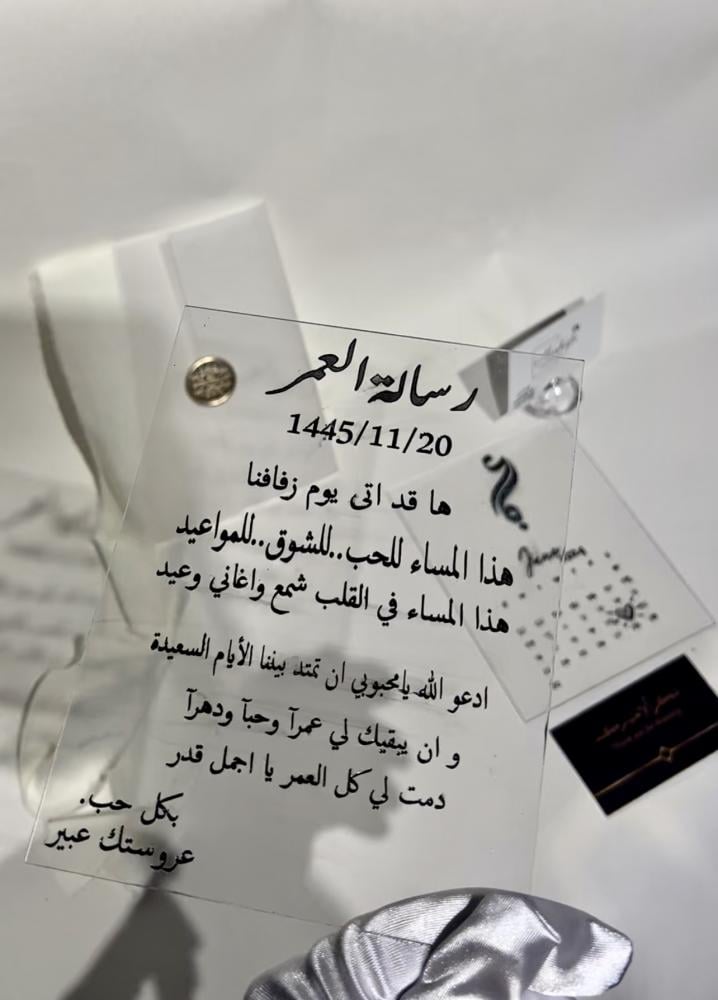 رسالة العمر
1445/11/20
ها قد اتى يوم زفافنا
هذا المساء للحب..للشوق..للمواعيد
هذا المساء في القلب شمع واغاني وعيد
ادعو الله يامحبوبي ان تمتد بيننا الأيام السعيدة
و ان يبقيك لي عمرآ وحبآ ودهرآ
دمت لي كل العمر يا اجمل قدر
بكل حب.
عروستك عبير